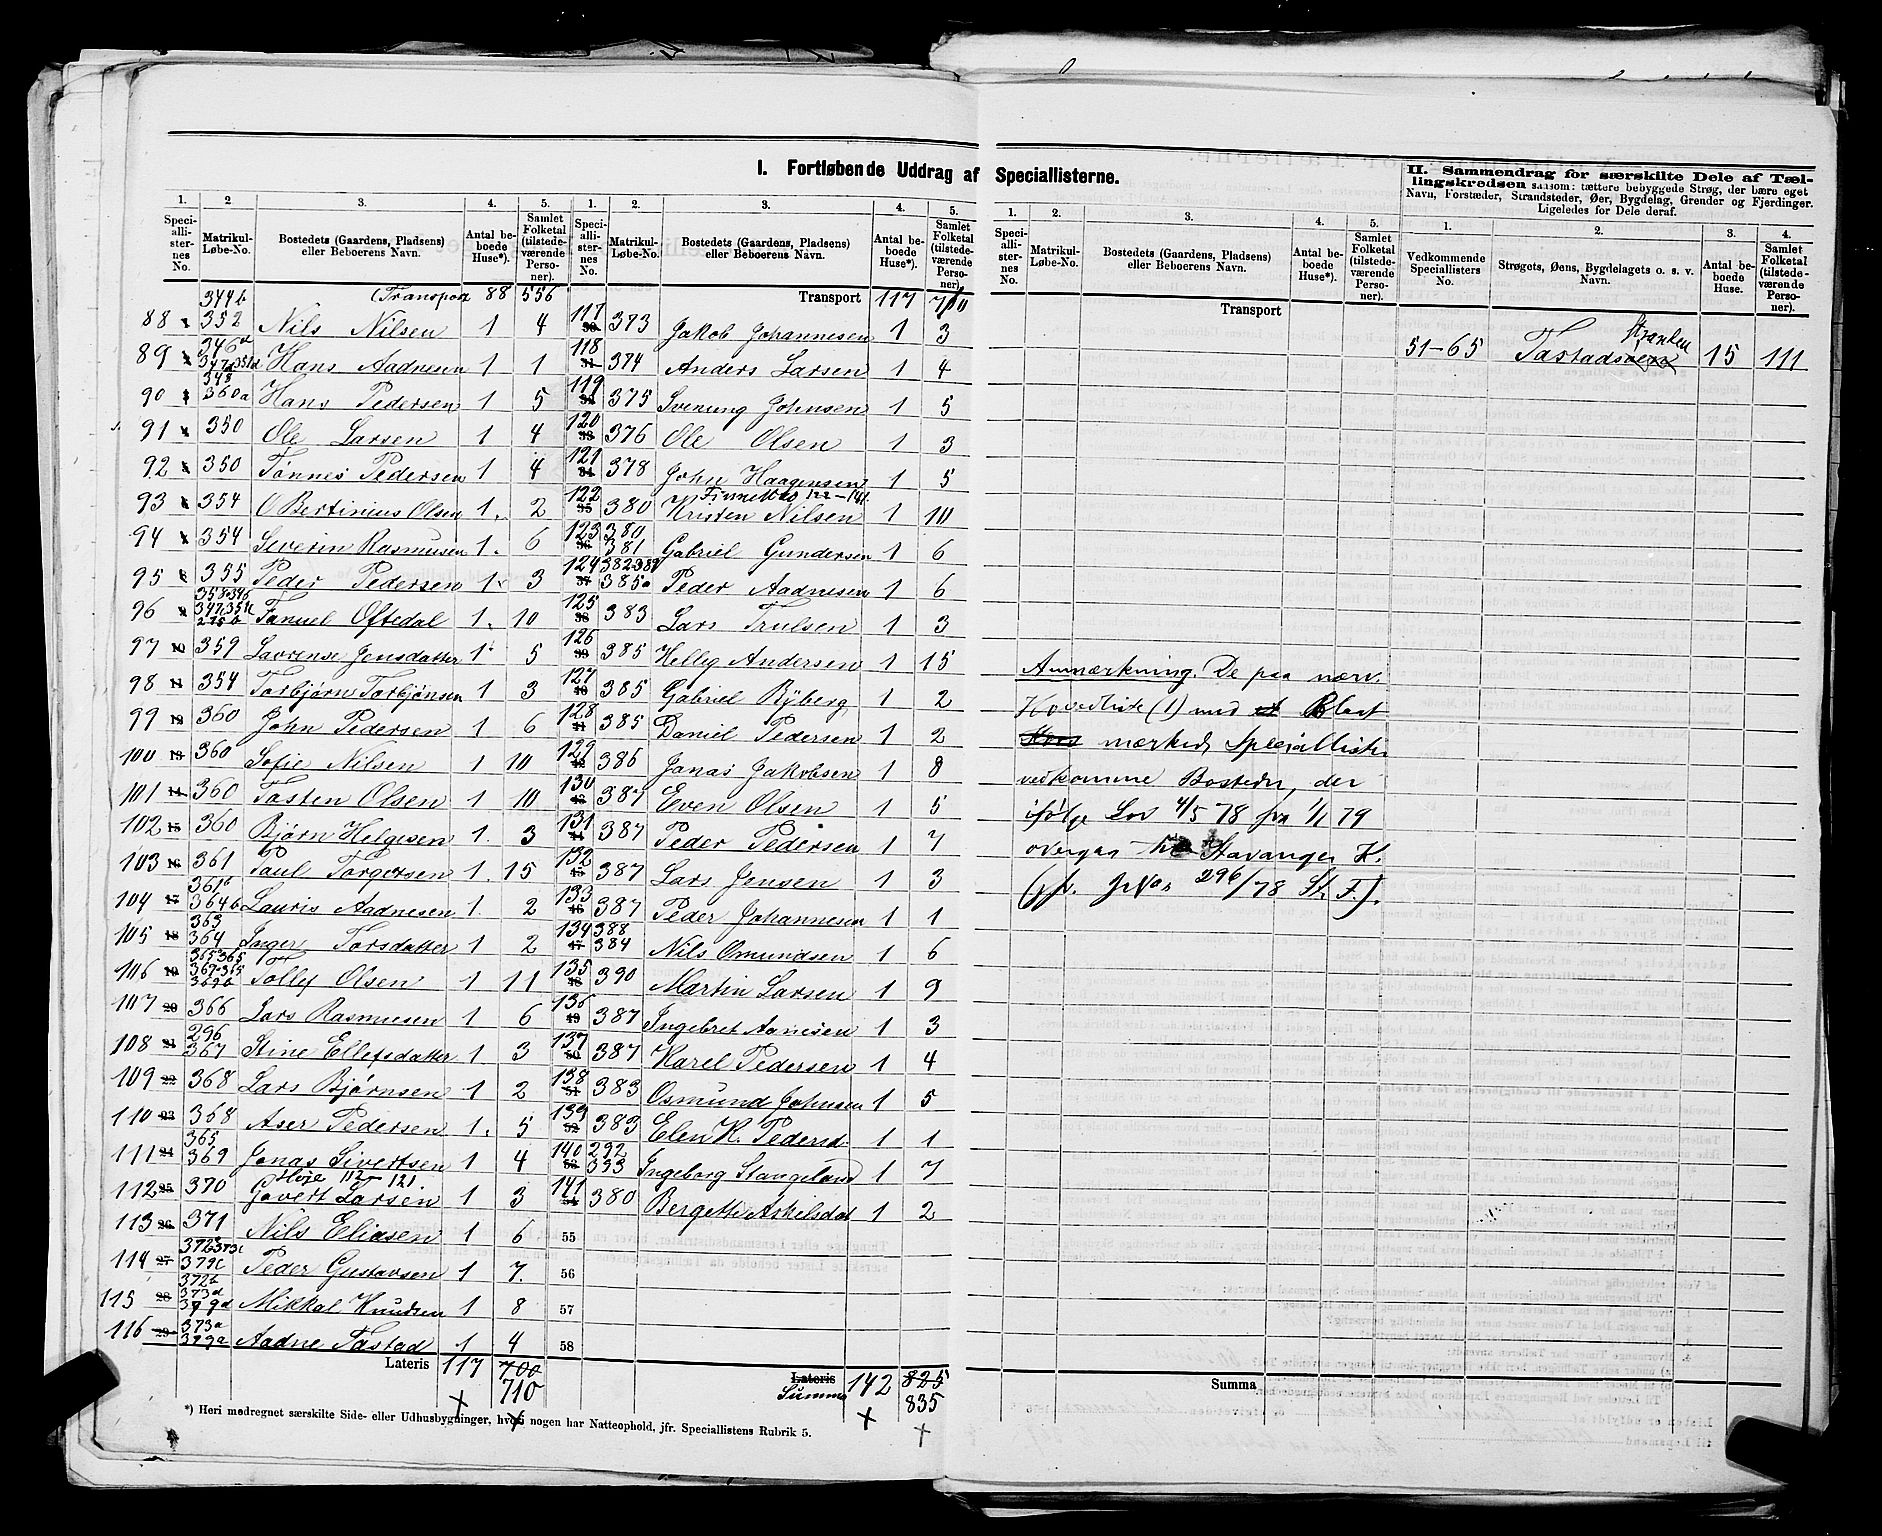 I. Fortløbende Uddrag af Speciallisterne.
1. 2 3. 4. 5.
Speciallisternes No. Matrikul-Løbe-No. Bostedets (Gaardens, Pladsens) eller Beboerens Navn. Antal beboede Huse*). Samlet Folketal (tilstedeværende Personer).
Transport 88 556
88 344b 352 Nils Nilsen 1 4
89 Hans Aadnesen 1 1
90 348 360a Hans Pedersen 1 5
91 350 Ole Larsen 1 4
92 350 Tønnes Pedersen 1 4
93 354 O Bertinius Olsen 1. 2
94 354 Severin Rasmusen 1. 6
95 355 Peder Pedersen 1 3
96 Tanuel Oftedal 1. 10
97 10 359 Lavrense Jensdatter 1 5
98 11 354 Torbjørn Torbjønsen 1 3
99 12 360 John Pedersen 1 6
100 13 360 Sofie Nilsen 1 10
101 14 360 Tosten Olsen 1 10
102 15 360 Bjørn Helgesen 1. 3
103 16 361 Paul Torgersen 1. 15
104 17 361b 364b Lauris Aadnesen 1. 2
105 18 363 364 Inger Torsdatter 1 2
106 19 365 365 367 368 369b Tollef Olsen 1 11
107 20 366 Lars Rasmusen 1 6
108 21 296 367 Stine Ellefsdatter 1 3
109 22 368 Lars Bjørnsen 1 2
110 23 368 Aser Pedersen 1. 5
111 24 365 369 Jonas Sivertsen 1 4
Høje 112–121
112 25 370 Govert Larsen 1 3
113 26 371 Nils Eliasen 1 6
114 27 379c Peder Gustavsen 1 7.
115 28 372b 373d 379d Mikkal Knudsen 1 8
116 29 373a 379a Aadne Tastad 1 4
Lateris 117 700
710
1. 2. 3. 4. 5.
Speciallisternes No. Matrikul-Løbe-No. Bostedets (Gaardens, Pladsens) eller Beboerens Navn. Antal beboede Huse*). Samlet Folketal (tilstedeværende Personer).
Transport 117 710
117 30 373 Jakob Johannesen 1 3
118 31 374 Anders Larsen 1 4
119 32 375 Svenung Johnsen 1 5
120 33 376 Ole Olsen 1 3
121 34 378 John Haagensen 1 5
122–141
122 35 380 Kristen Nilsen 1 10
123 36 380 381 Gabriel Gundersen 1 6
124 37 385a Peder Aadnesen 1 6
125 38 383 Lars Trulsen 1 3
126 39 385 Helleg Andersen 1 15
127 40 385 Gabriel Ryberg 1 2
128 41 385 Daniel Pedersen 1 2
129 42 386 Jonas Jakobsen 1 8
130 43 387 Even Olsen 1 5
131 44 387 Peder Pedersen 1 7
132 45 387 Lars Jensen 1 3
133 46 387 Peder Johannesen 1 1
134 47 388 384 Nils Omundsen 1 6
135 48 390 Martin Larsen 1 9
136 49 387 Ingebret Aanesen 1 3
137 50 387 Karel Pedersen 1 4
138 51 383 Osmund Johnsen 1 5
139 52 383 Elen K. Pedersd. 1 1
140 53 292 393 Ingeborg Stangeland 1 7
141 54 380 Bergette Askilsdat 1 2
55
56
57
58
Lateris 142 825
Summa 835
*) Heri medregnet særskilte Side- eller Udhusbygninger, hvori nogen har Natteophold, jfr. Speciallistens Rubrik 5.
1. 2. 3. 4. 5.
Speciallisternes No. Matrikul-Løbe-No. Bostedets (Gaardens, Pladsens) eller Beboerens Navn. Antal beboede Huse*). Samlet Folketal (tilstedeværende Personer).
Transport
Anmærkning. De paa nærv.
Hovedliste (1) med Blaat
mærkede Speciallister
vedkomme Bosteder, der
ifølge Lov 4/5 78 fra 1/1 79
overgaa til Stavanger K.
(jfr. JNo 296/78 St. F.).
Summa
II. Sammendrag for særskilte Dele af Tællingskredsen saasom: tættere bebyggede Strøg, der bære eget
Navn, Forstæder, Strandsteder, Øer, Bygdelag, Grender og Fjerdinger.
Ligeledes for Dele deraf.
1. 2. 3. 4.
Vedkommende Speciallisters No. Strøgets, Øens, Bygdelagets o. s. v. Navn. Antal beboede Huse. Samlet Folketal (tilstedeværende Personer).
51–65 15 111